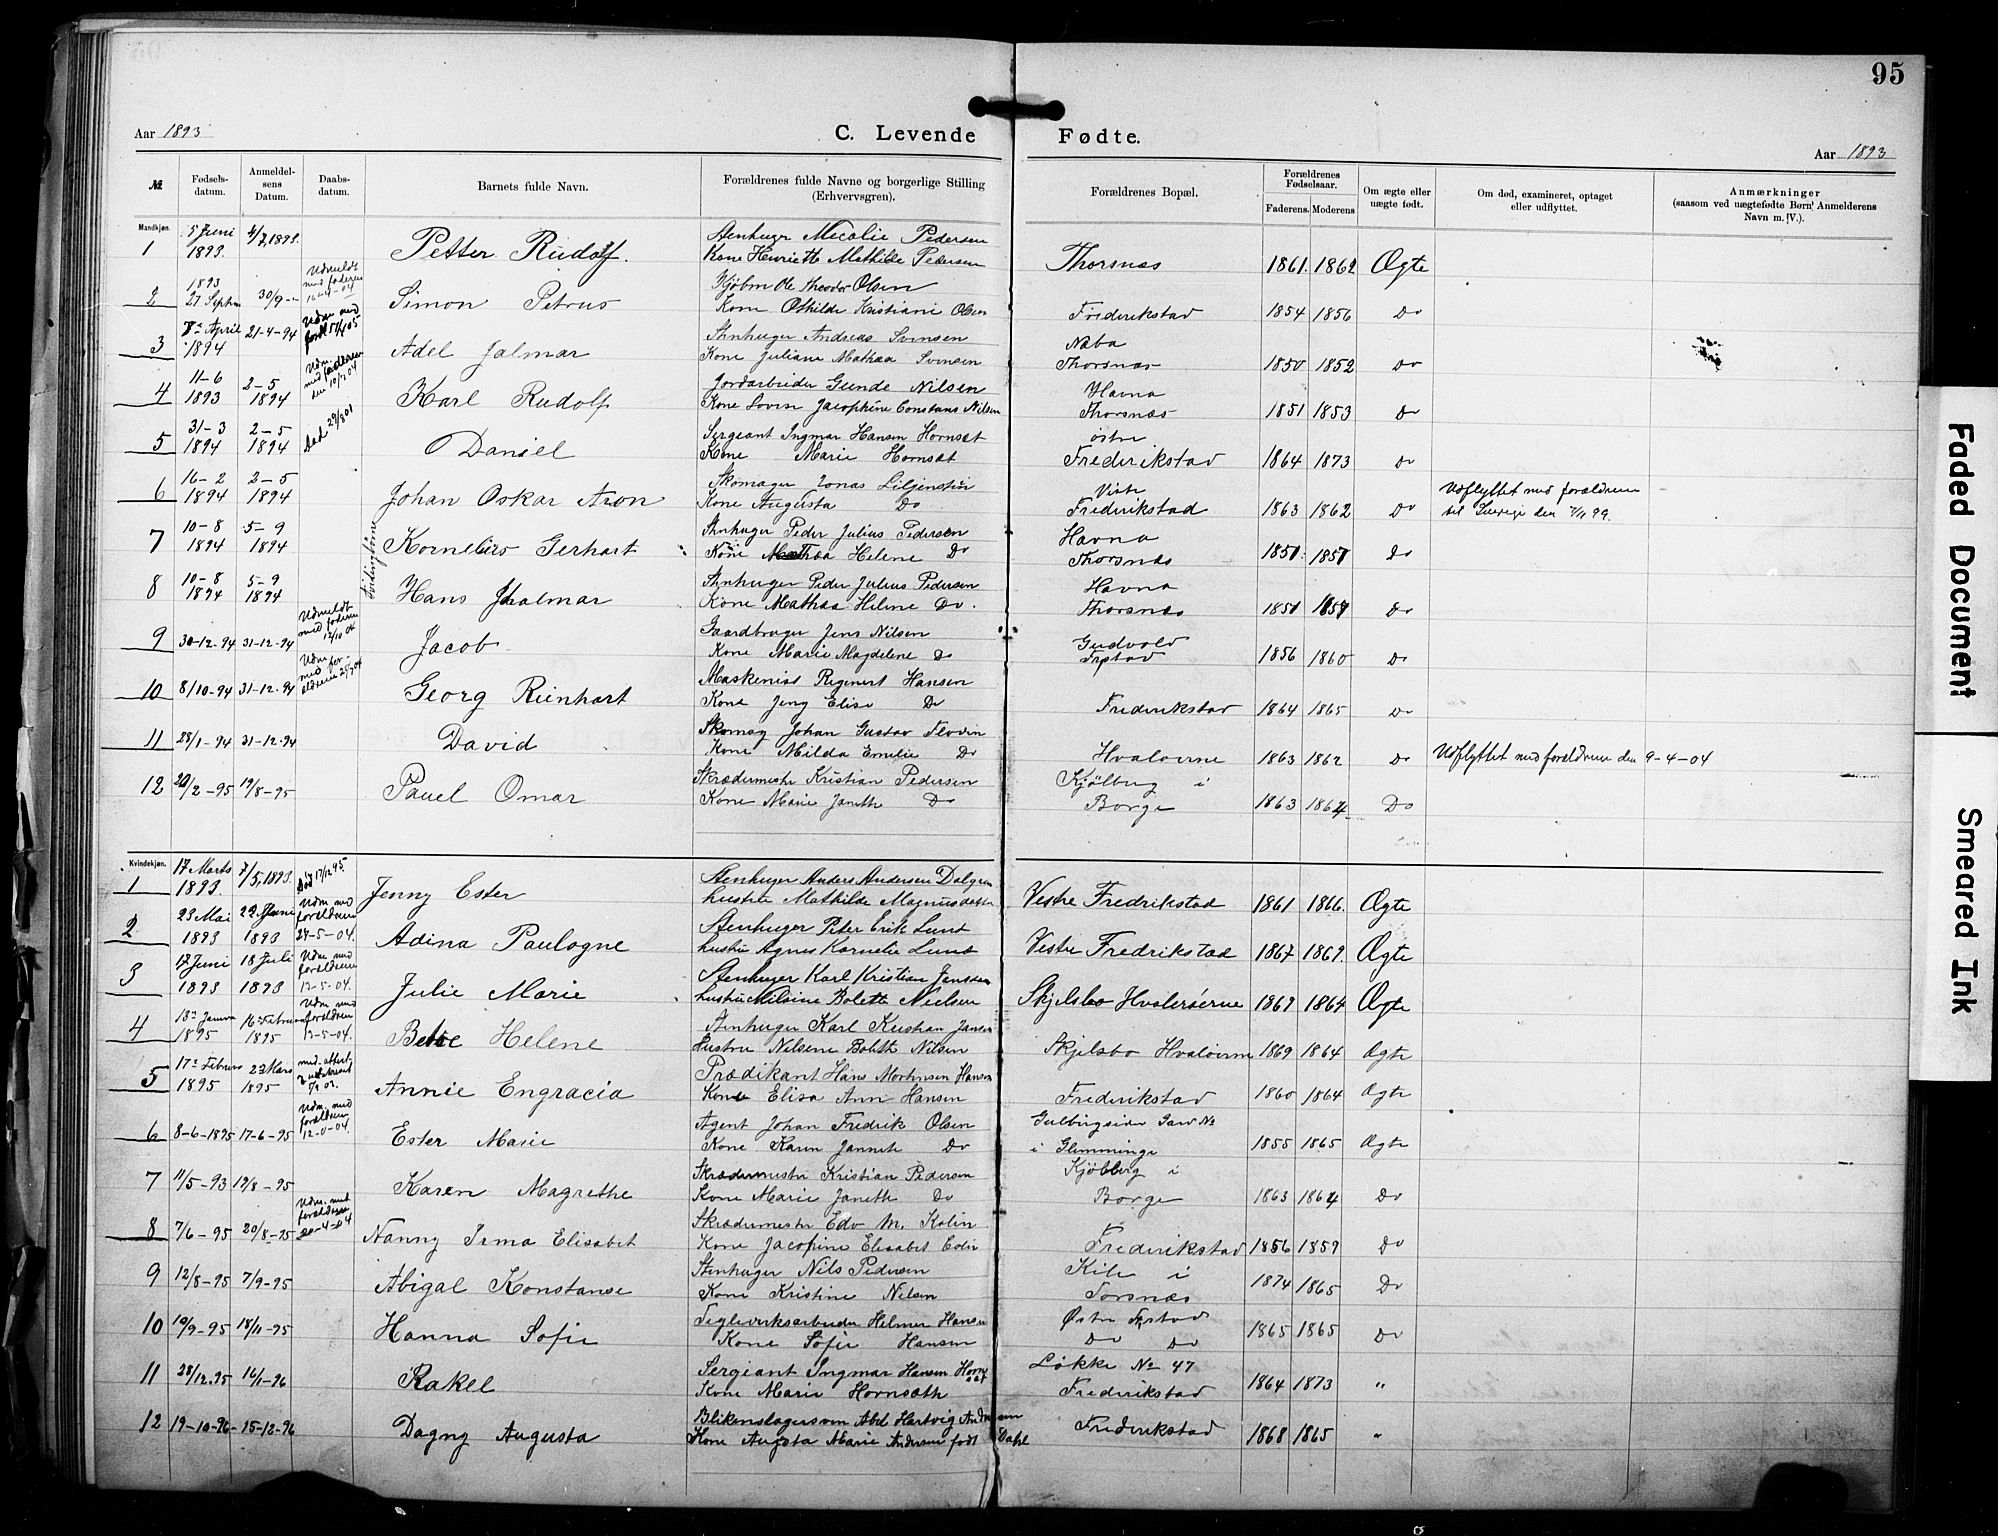 95
Aar 1893
C. Levende Fødte.
Aar 1893
№
Fødsels-datum.
Anmeldel-sens Datum.
Daabs-datum.
Barnets fulde Navn.
Forældrenes fulde Navne og borgerlige Stilling (Erhvervsgren).
Forældrenes Bopæl.
Forældrenes Fødselsaar.
Faderens.
Moderens
Om ægte eller uægte født.
Om død, examineret, optaget eller udflyttet.
Anmærkninger
(saasom ved uægtefødte Børn, Anmelderens Navn m. V.).
Mandkjøn.
1 5 Juni 1893. 4/7 1893. Petter Rudolf. Stenhugr Mecolie Pedersen
Kone Henriette Mathilde Pedersen Thorsnæs 1861. 1862 Ægte
2 1893 27 Septm 30/9 Udmeldt med foderen Simon Petrus Kjøbm Ole Theodor Olsen
Kone Othilde Kristiane Olsen Frederikstad 1854 1856 Do
3 April 1894 21-4-94 Adel Jalmar Stnhuger Andreas Svensen
Kone Juliane Mathea Svensen Næba Thorsnæs 1850 1852 Do
4 11-6 1893 2-5 1894 Karl Rudolf Jordarbeider Gunde Nilsen
Kone Lovise Jacophine Constans Nilsen Havna Thorsnæs 1851 1853 Do
5 31-3 1894 2-5 1894 Død 29/8 01 Daniel Sergeant Ingmar Hansen Hornsæt
Kone Marie Hornsæt østre Frederikstad 1864 1873 Do
6 16-2 1894 2-5 1894 Johan Oskar Aron Skomager Jonas Liljenstün
Kone Augusta Do Vistr Frederikstad 1863 1862 Do Udflyttet med forældrene
til Sverige den 7/11 99.
7 10-8 1894 5-9 1894 Tvillingbörn Kornelius Gerhart Stnhuger Peder Julius Pedersen
Kone Mathea Helene Do Havna Thorsnæs 1851. 1857 Do
8 10-8 1894 5-9 1894 Hans Jhalmar Stnhuger Peder Julius Pedersen
Kone Mathea Helene Do. Havna Thorsnæs 1851 1857 Do
9 30-12-94 31-12-94 Udmeldt med foderen Jacob Gaardbruger Jens Nilsen
Kone Marie Magdelene Do Gudvold 1856 1860 Do
10 8/10-94 31-12-94 Georg Reinhart Maskenist Reginert Hansen
Kone Jeny Elise Do Frederikstad 1864 1865 Do
11 28/1-94 31-12-94 David Skomag Johan Gustav Flodin
Kone Milda Emelie Do Hvaløerne 1863 1862 Do Udflyttet med forældrene den 9-4-04
12 20/2-95 19/8-95 Pauel Omar Skrædermestr Kristian Pedersen
Kone Marie Janeth Do Kjölberg i Borge 1863 1864 Do
Kvindekjøn.
1 17 Marts 1893. 7/5, 1893. Død 17/12 95. Jenny Ester Stenhuger Anders Andersen Dalgren
hustru Mathilde Magnusdatter Vestre Fredrikstad 1861 1866. Ægte
2 23 Mai 1893 29 Juni 1893 Udm med forældrene 24-5-04. Adina Paulogne Stenhuger Peter Erik Lund
hustru Agnes Kornelie Lund Vestre Fredrikstad 1867 1869. Ægte
3 17 Juni 1893 18 Juli 1893 Udm med forældrene 13-5-04. Julie Marie Stenhuger Karl Kristian Janssen
hustru Nilsine Bolette Nielsen Skjelsbo Hvalerøerne 1869 1864 Ægte
4 1895 16 Februa 1895 Udm med forældrene 13-5-04. Betsie Helene Stenhuger Karl Kristian Jansen
Hustru Nilsene Bolett Nilsen Skjelsbo Hvaløerne 1869 1864 Ægte
5 17 Februa 1895 23 Mars 1895 Annie Engracia Prædikant Hans Mortinsen Hansen
Kone Elisa Ann Hansen Frederikstad 1860 1864 Ægte
6 8-6-1895 17-6-95 Udm. med forældrene Ester Marie Agent Johan Fredrik Olsen
Kone Karen Janneth Do i Glimminge 1855 1865 Ægte
7 11/5-93 19/8-95 Karen Magrethe Skrædermestr Kristian Pedersen
Kone Marie Janeth Do Kjölberg i Borge 1863 1864 Do
8 7/6-95 20/8-95 Udm. med forældrene 20-4-04 Nanny Irma Elisabet Skrædermestr Edv M. Kolin
Kone Jacopine Elisabet Frederikstad 1856 1859 Do
9 12/8-95 7/9-95 Abigal Konstanse Stenhuger Nils Pedersen
Kone Kristine Nilsen Kile i Torsnæs 1874 1865 Do
10 19/9-95 18/11-95 Hanna Sofie Teglverksarbeider Helmer Hansen
Kone Sofie Hansen Østre Fstad Do Do 1865 1865 Do
11 28/12-95 16/1-96 Rakel Sergeant Ingmar Hansen Hornsæt
Kone Marie Hornsæth Løkke No 47 Frederikstad 1864 1873 "
12 19-10-96 15-12-96 Dagny Augusta Blikenslagersven Abel Hartvig Andersen
Kone Augsta Marie Andersen født Dahl Frederikstad 1868 1865 "
Faded Document
Smeared Ink